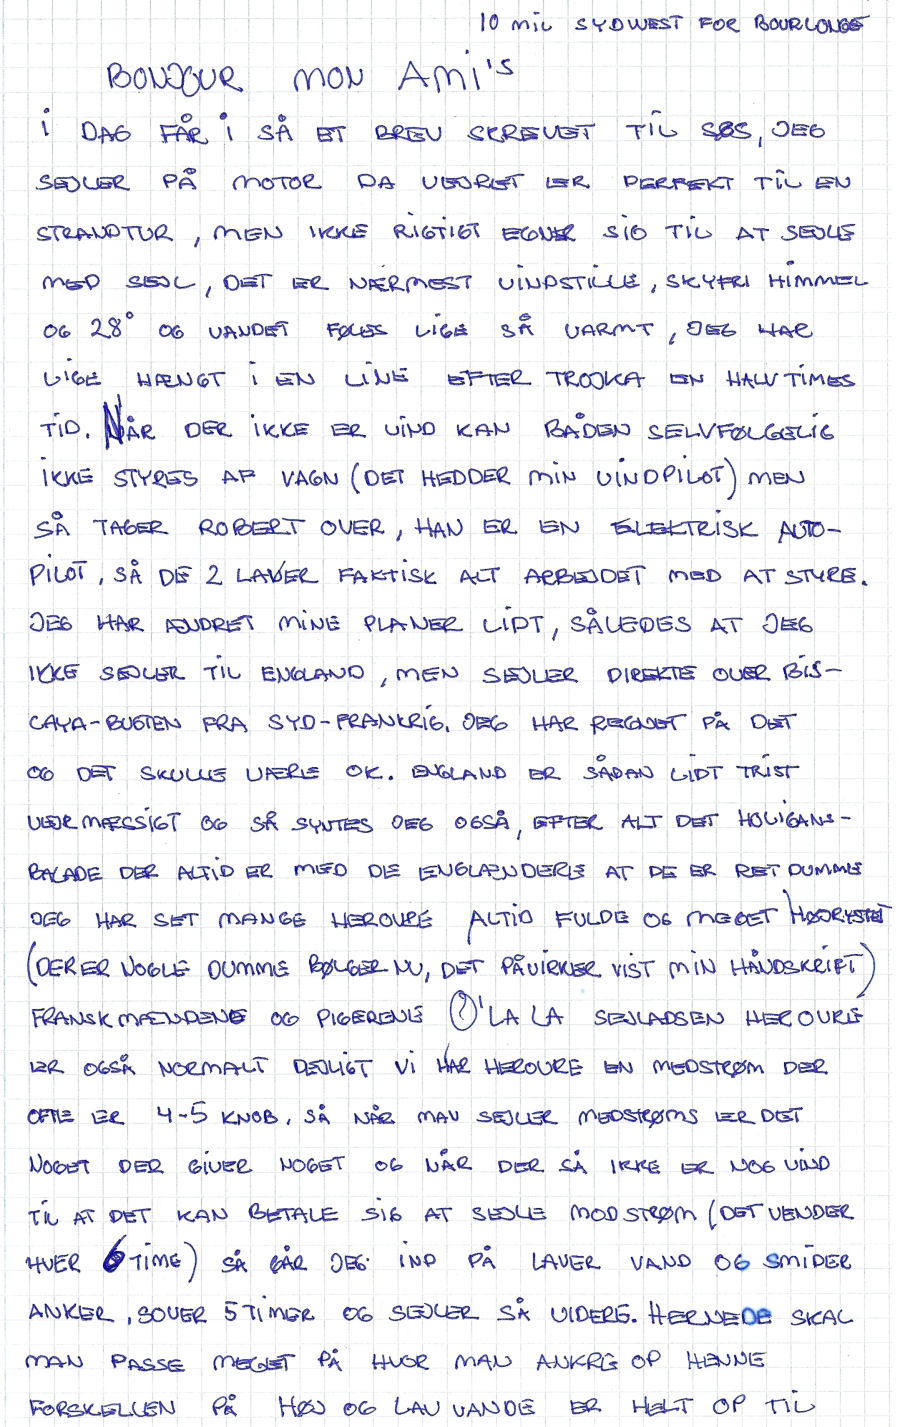 10 mil SYDWEST FOR BOURLONGE
BONJOUR MON AMI'S
I DAG FÅR I SÅ ET BREV SKREVET TIL SØS, JEG
SEJLER PÅ MOTOR DA VEJRET ER PERFEKT TIL EN
STRANDTUR, MEN IKKE RIGTIGT EGNER SIG TIL AT SEJLE
MED SEJL, DET ER NÆRMEST VINDSTILLE, SKYFRI HIMMEL
OG 28° OG VANDET FØLES LIGE SÅ VARMT, JEG HAR
LIGE HÆNGT I EN LINE EFTER TROJKA EN HALV TIMES
TID. NÅR DER IKKE ER VIND KAN BÅDEN SELVFØLGELIG
IKKE STYRES AF VAGN (DET HEDDER MIN VINDPILOT) MEN
SÅ TAGER ROBERT OVER, HAN ER EN ELEKTRISK AUTO-
PILOT, SÅ DE 2 LAVER FAKTISK ALT ARBEJDET MED AT STYRE.
JEG HAR ÆNDRET MINE PLANER LIDT, SÅLEDES AT JEG
IKKE SEJLER TIL ENGLAND, MEN SEJLER DIREKTE OVER BIS-
CAYA-BUGTEN FRA SYD-FRANKRIG. JEG HAR REGNET PÅ DET
OG DET SKULLE VÆRE OK. ENGLAND ER SÅDAN LIDT TRIST
VEJRMÆSSIGT OG SÅ SYNTES JEG OGSÅ, EFTER ALT DET HOLIGANS-
BALADE DER ALTID ER MED DE ENGLÆNDERE AT DE ER RET DUMME
JEG HAR SET MANGE HEROVRE ALTID FULDE OG MEGET HØJRYSTET
(DER ER NOGLE DUMME BØLGER NU, DET PÅVIRKER VIST MIN HÅNDSKRIFT)
FRANSKMÆNDENE OG PIGERENE O'LA LA SEJLADSEN HEROVRE
ER OGSÅ NORMALT DEJLIGT VI HAR HEROVRE EN MEDSTRØM DER
OFTE ER 4-5 KNOB. SÅ NÅR MAN SEJLER MEDSTRØMS ER DET
NOGET DER GIVER NOGET OG NÅR DER SÅ IKKE ER NOG VIND
TIL AT DET KAN BETALE SIG AT SEJLE MODSTRØM (DET VENDER
HVER 6 TIME) SÅ GÅR JEG IND PÅ LAVER VAND OG SMIDER
ANKER, SOVER 5 TIMER OG SEJLER SÅ VIDERE. HERNEDE SKAL
MAN PASSE MEGET PÅ HVOR MAN ANKRE OP HENNE
FORSKELLEN PÅ HØJ OG LAV VANDE ER HELT OP TIL